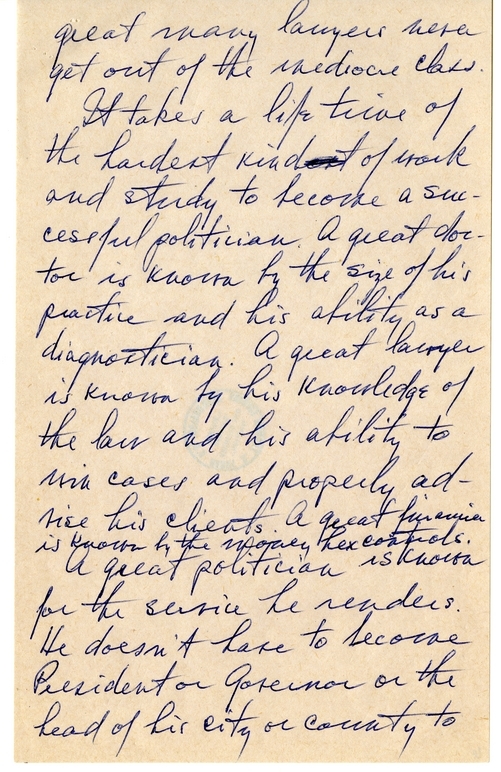 great many lawyers never
get out of the mediocre class.
It takes a life time of
the hardest kind of work
and study to become a suc-
cessful politician. A great doc-
tor is known by the size of his
practice and his ability as a
diagnostician. A great lawyer
is known by his knowledge of
the law and his ability to
win cases and properly ad-
vise his clients. A great financier
is known by the money he controls.
A great politician is known
for the service he renders.
He doesn't have to become
President or Governor or the
head of his city or county to